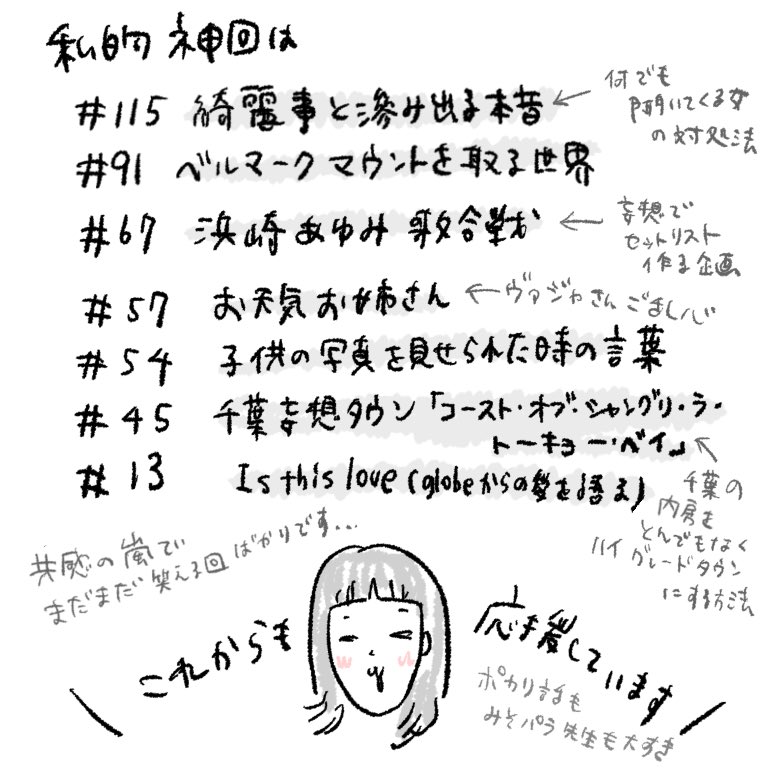 私的 神回は
#115 綺麗事と滲み出る本音
←何でも
聞いてくる女
の対処法
#91 ベルマークマウントを取る世界
#67 浜崎あゆみ歌合戦
←妄想で
セットリスト
作る企画
#57 お天気お姉さん
←ヴァジャさんごましぃ
#54 子供の写真を見せられた時の言葉
#45 千葉妄想タウン「コースト・オブ・シャングリ・ラ・
トーキョー・ベイ」
千葉の
内房を
とんでもなく
ハイグレードタウン
にする方法
#13 Is this love (globeからの愛を語る)
共感の嵐で
まだまだ笑える回ばかりです...
これからも
応援しています
ポカリ話も
みそパラ先生も大すき